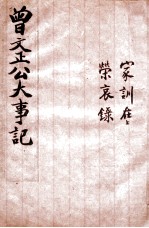 家訓在
榮哀錄
曾文正公大事記